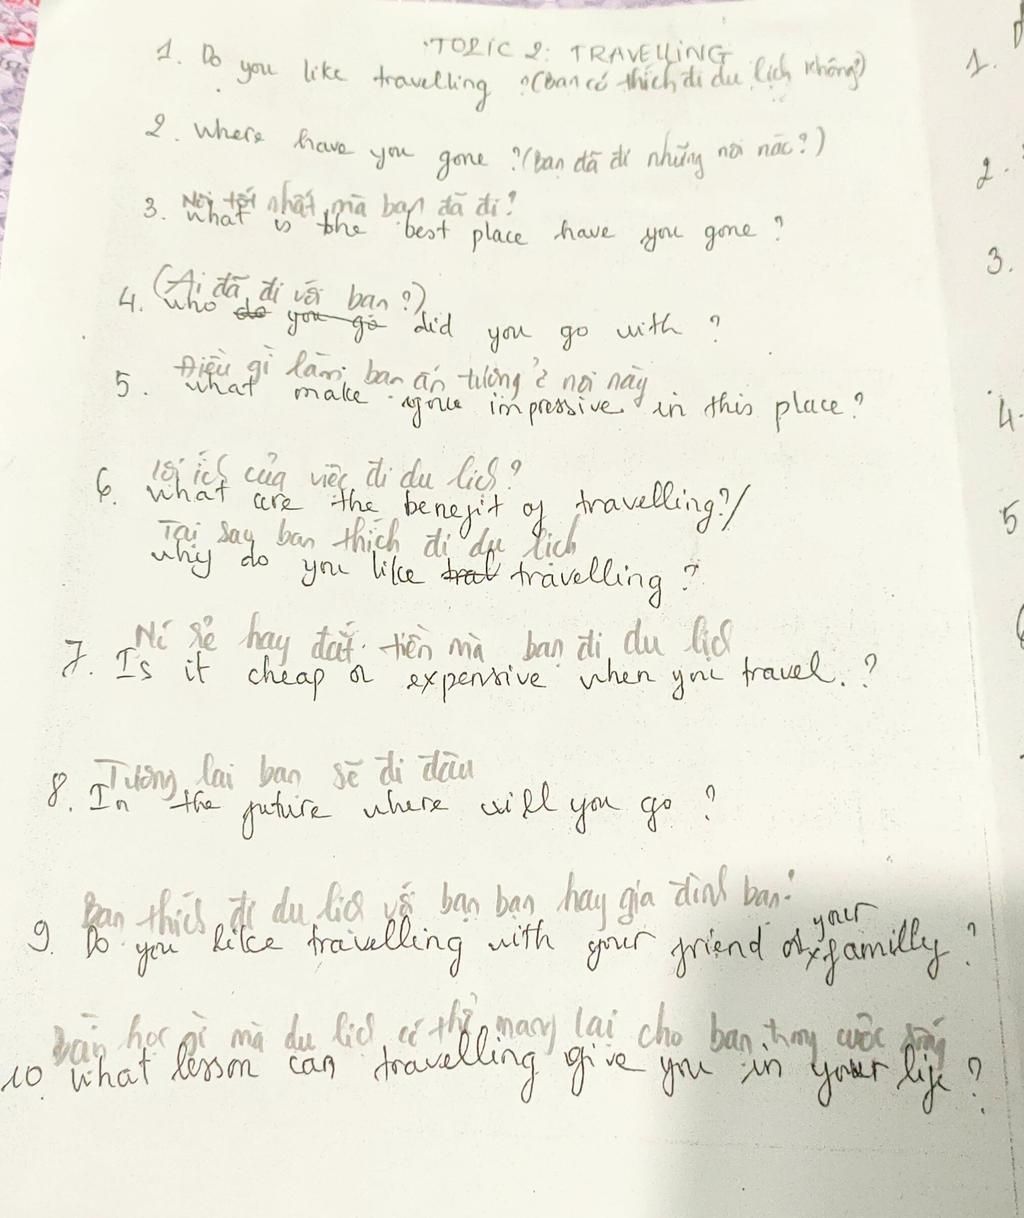 TOPIC 2: TRAVELLING
1. Do you like travelling ? (Bạn có thích đi du lịch không?)
2. Where have you gone ? (Bạn đã đi những nơi nào?)
Nơi tốt nhất mà bạn đã đi?
3. What is the best place have you gone ?
(Ai đã đi với bạn?)
4. Who do you go did you go with ?
Điều gì làm bạn ấn tượng ở nơi này
5. What make you impressive in this place?
lợi ích của việc đi du lịch?
6. What are the benefit of travelling?/
Tại say bạn thích đi du lịch
why do you like tral travelling ?
Nó rẻ hay đắt tiền mà bạn đi du lịch
7. Is it cheap or expensive when you travel. ?
Tương lai bạn sẽ đi đâu
8. In the future where will you go ?
Bạn thích đi du lịch với bạn bạn hay gia đình bạn?
9. Do you like travelling with your friend or your familly ?
Bài học gì mà du lịch có thể mang lại cho bạn trong cuộc sống
10. What lesson can travelling give you in your life ?
1.
2.
3.
4.
5